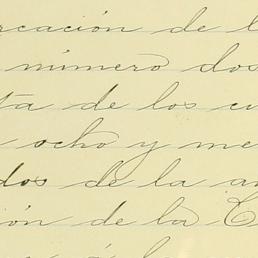 rcación de l
número dos
ta de los cu
ocho y me
dos de la a
ión de la C